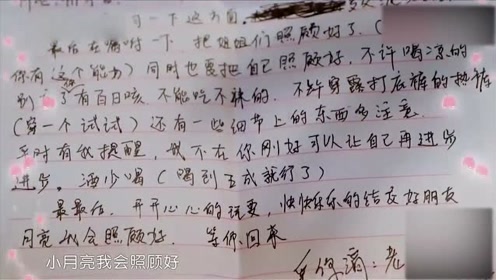 习一下这方面.
最后在嘱咐一下. 把姐姐们照顾好了.(
你有这个能力) 同时也要把自己照顾好. 不许喝凉的
别 了有百日咳. 不能吃不辣的. 不许穿露打底裤的热裤
(穿一个试试) 还有一些细节上的东西多注意.
平时有我提醒, 我不在你刚好可以让自己再进步
进步. 酒少喝 (喝到五成就行了)
最最后. 开开心心的玩耍, 快快乐乐的结友好朋友
月亮我会照顾好. 等你回来
小月亮我会照顾好